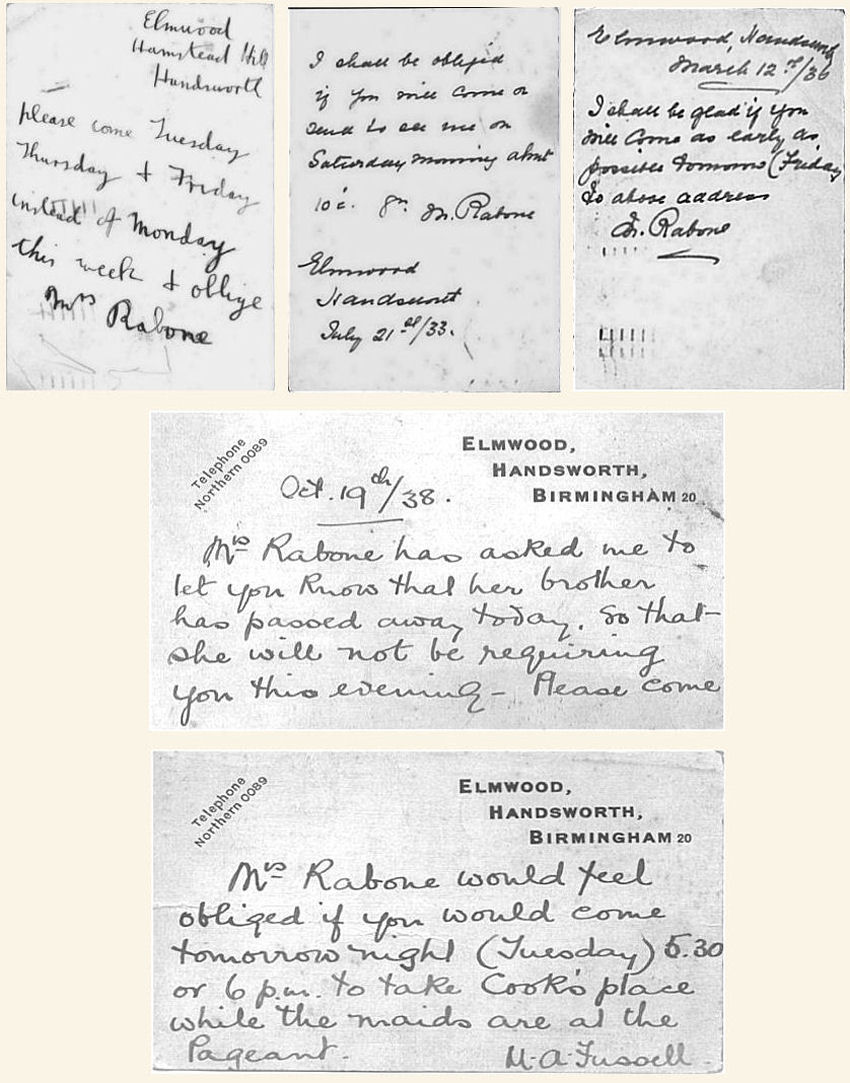 Elmwood
Hamstead Hill
Handsworth
please come Tuesday
Thursday & Friday
instead of Monday
this week & oblige
Mrs Rabone
I shall be obliged
if you will come or
send to see me on
Saturday morning about
10 c. M. Rabone
Elmwood
Handsworth
July 21st/33.
Elmwood, Handsworth
March 12th/36
I shall be glad if you
will come as early as
possible tomorrow (Friday
to above address
M. Rabone
Telephone
Northern 0089
ELMWOOD,
HANDSWORTH,
BIRMINGHAM 20
Oct. 19th/38.
Mrs Rabone has asked me to
let you know that her brother
has passed away today. So that
she will not be requiring
you this evening - Please come
Telephone
Northern 0089
ELMWOOD,
HANDSWORTH,
BIRMINGHAM 20
Mrs Rabone would feel
obliged if you would come
tomorrow night (Tuesday) 5.30
or 6 p.m. to take Cook's place
while the maids are at the
Pageant.
M. A. Fussell.